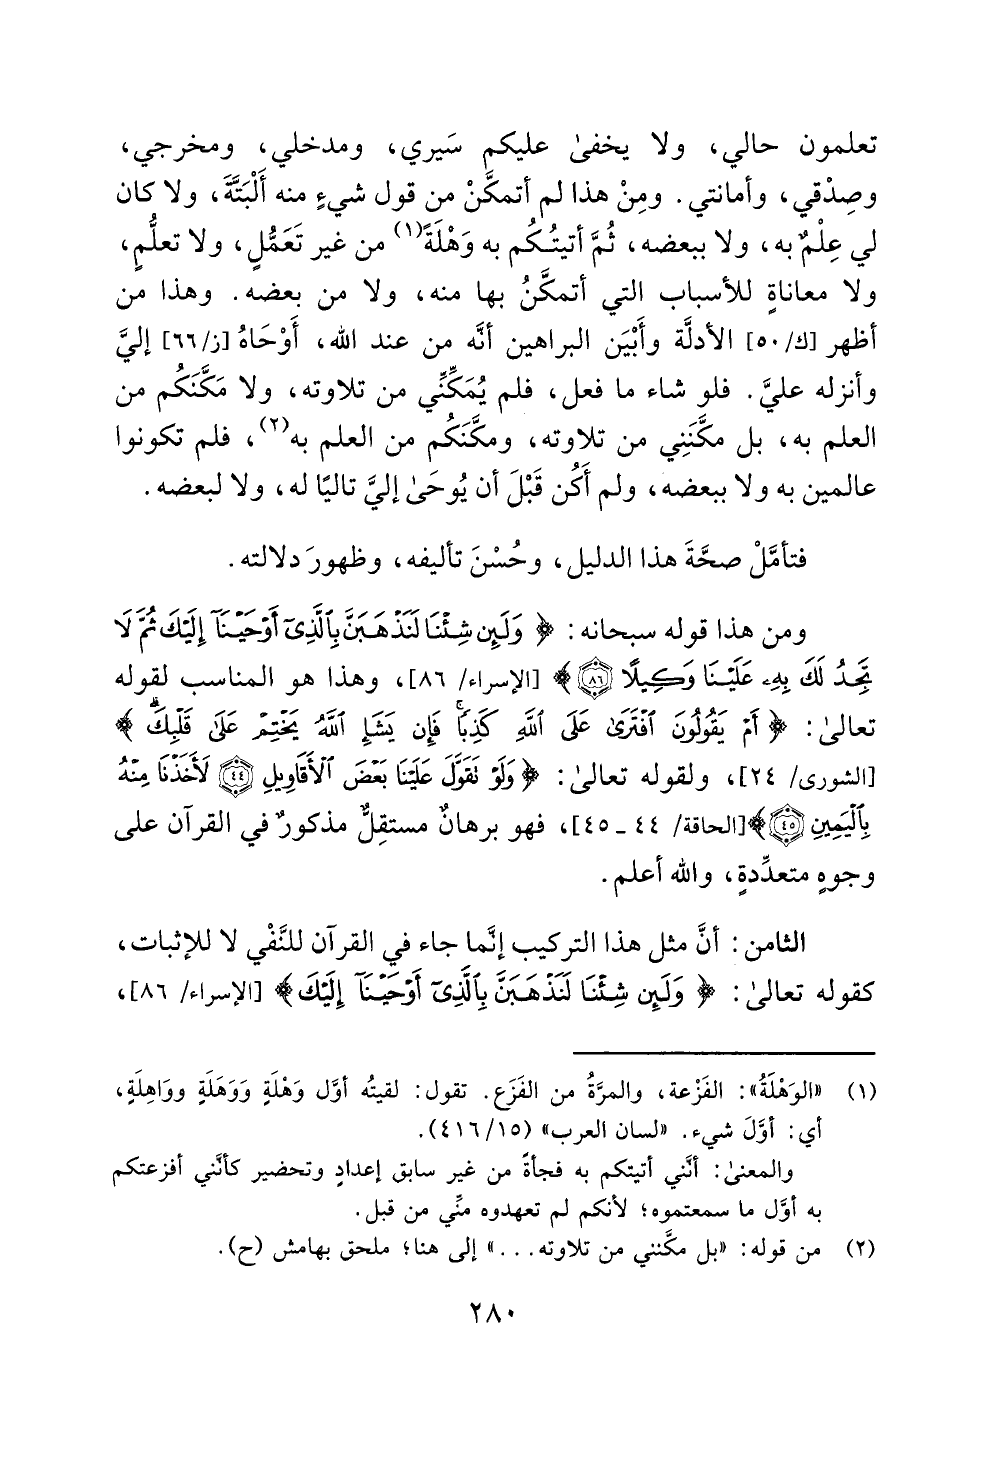 تعلمون حالي، ولا يخفىٰ عليكم سَيري، ومدخلي، ومخرجي،
وصِدْقي، وأمانتي. ومِنْ هذا لم أتمكَّنْ من قول شيءٍ منه أَلْبَتَّةَ، ولا كان
لي عِلْمٌ به، ولا ببعضه، ثُمَّ أتيتُكم به وَهْلَةً(١) من غير تَعَمُّلٍ، ولا تعلُّمٍ،
ولا معاناةٍ للأسباب التي أتمكَّنُ بها منه، ولا من بعضه. وهذا من
أظهر [ك/٥٠] الأدلَّة وأَبْيَن البراهين أنَّه من عند الله، أَوْحَاهُ [ز/٦٦] إليَّ
وأنزله عليَّ. فلو شاء ما فعل، فلم يُمَكِّنِّي من تلاوته، ولا مَكَّنَكُم من
العلم به، بل مكَّنَنِي من تلاوته، ومكَّنَكُم من العلم به(٢)، فلم تكونوا
عالمين به ولا ببعضه، ولم أَكُن قَبْلَ أن يُوحَىٰ إليَّ تاليًا له، ولا لبعضه.
فتأمَّلْ صحَّةَ هذا الدليل، وحُسْنَ تأليفه، وظهورَ دلالته.
ومن هذا قوله سبحانه: ﴿ وَلَئِن شِئْنَا لَنَذْهَبَنَّ بِٱلَّذِىٓ أَوْحَيْنَآ إِلَيْكَ ثُمَّ لَا
تَجِدُ لَكَ بِهِۦ عَلَيْنَا وَكِيلًا ٨٦﴾ [الإسراء/ ٨٦]، وهذا هو المناسب لقوله
تعالىٰ: ﴿ أَمْ يَقُولُونَ ٱفْتَرَىٰ عَلَى ٱللَّهِ كَذِبًا ۖ فَإِن يَشَإِ ٱللَّهُ يَخْتِمْ عَلَىٰ قَلْبِكَ ۗ ﴾
[الشورى/ ٢٤]، ولقوله تعالىٰ: ﴿ وَلَوْ تَقَوَّلَ عَلَيْنَا بَعْضَ ٱلْأَقَاوِيلِ ٤٤ لَأَخَذْنَا مِنْهُ
بِٱلْيَمِينِ ٤٥﴾[الحاقة/ ٤٤ ـ ٤٥]، فهو برهانٌ مستقِلٌّ مذكورٌ في القرآن على
وجوهٍ متعدِّدةٍ، والله أعلم.
الثامن: أنَّ مثل هذا التركيب إنَّما جاء في القرآن للنَّفْي لا للإثبات،
كقوله تعالىٰ: ﴿ وَلَئِن شِئْنَا لَنَذْهَبَنَّ بِٱلَّذِىٓ أَوْحَيْنَآ إِلَيْكَ﴾ [الإسراء/ ٨٦]،
(١) «الوَهْلَةُ»: الفَزْعة، والمرَّةُ من الفَزَع. تقول: لقيتُه أوَّل وَهْلَةٍ وَوَهَلَةٍ وواهِلَةٍ،
أي: أوَّلَ شيء. «لسان العرب» (٤١٦/١٥).
والمعنىٰ: أنَّني أتيتكم به فجأةً من غير سابق إعدادٍ وتحضير كأنَّني أفزعتكم
به أوَّل ما سمعتموه؛ لأنكم لم تعهدوه منِّي من قبل.
(٢) من قوله: «بل مكَّنني من تلاوته...» إلى هنا؛ ملحق بهامش (ح).
٢٨٠